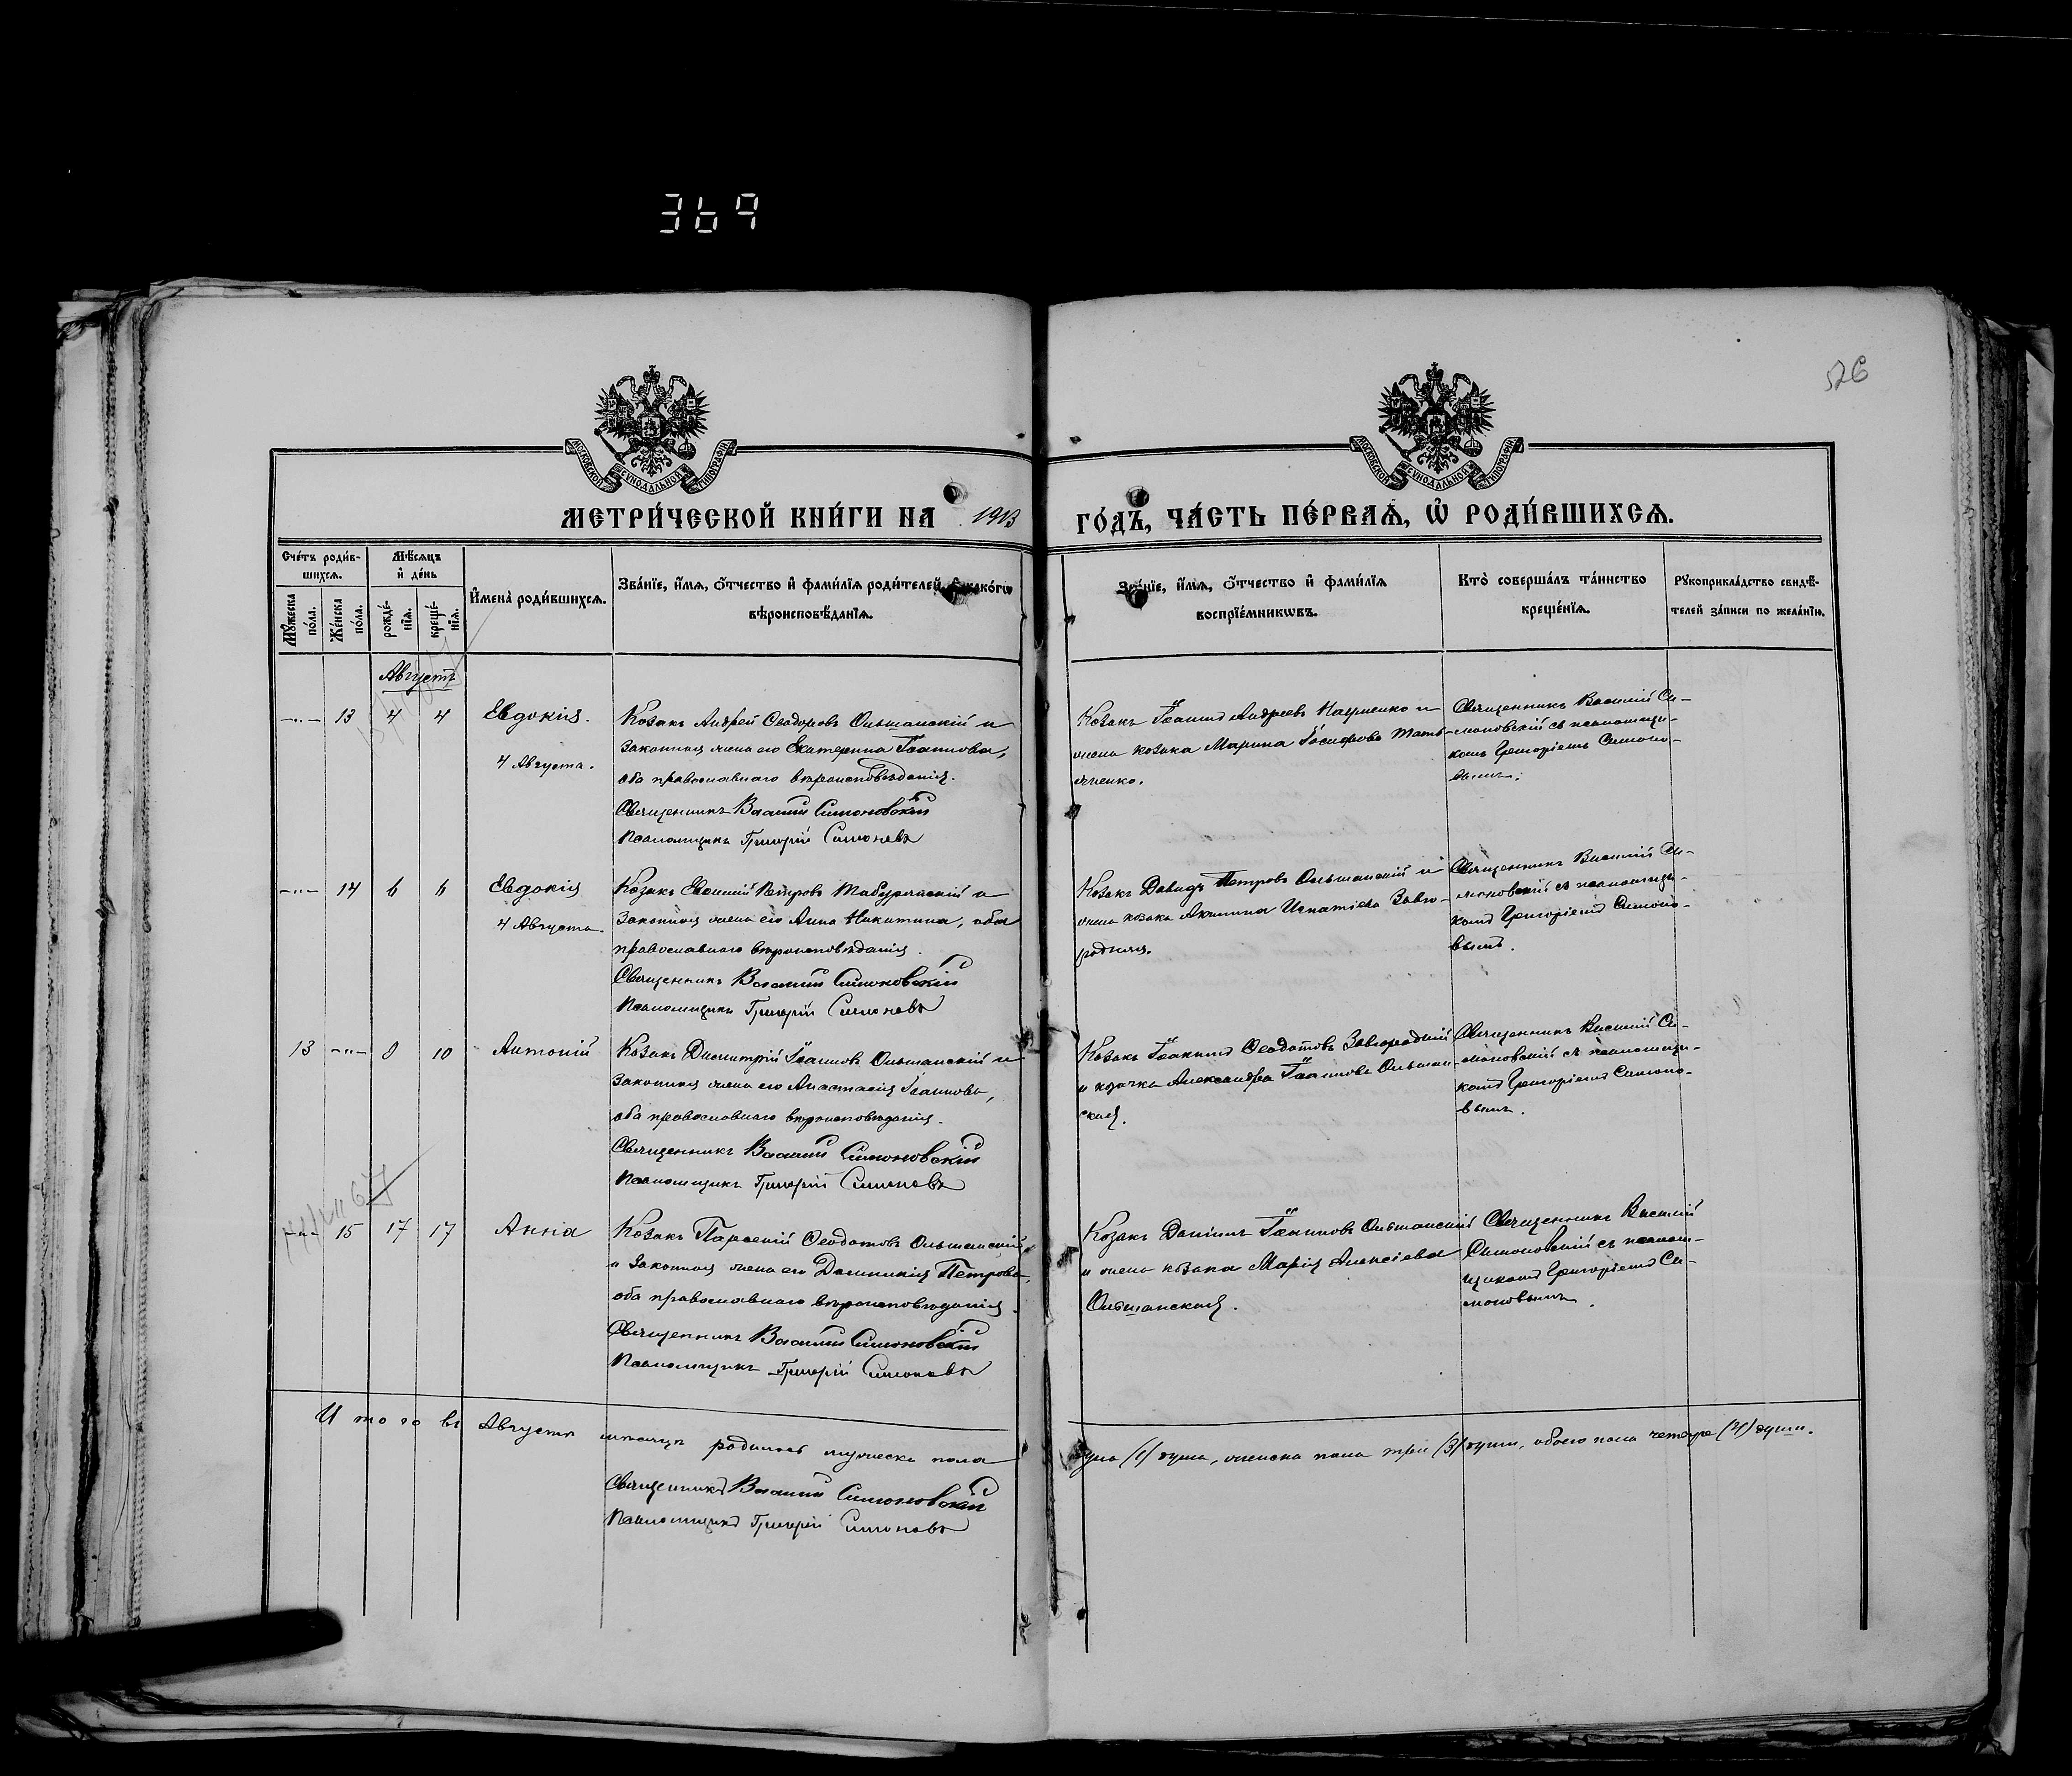 369
26
МОСКОВСКОЙ СѴНОДАЛЬНОЙ ТИПОГРАФІИ
МОСКОВСКОЙ СѴНОДАЛЬНОЙ ТИПОГРАФІИ
МЕТРИ́ЧЕСКОЙ КНИ́ГИ НА 1913 ГО́ДЪ, ЧА́СТЬ ПЕ́РВАѦ, Ѡ҆ РОДИ́ВШИХСѦ.
Сче́тъ роди́в-
шихсѧ.
Мѣ́сѧцъ
и҆ де́нь
Мꙋ́жеска
по́ла.
Же́нска
по́ла.
рожде́-
нїѧ.
креще́-
нїѧ.
И҆мена̀ роди́вшихсѧ.
Зва́нїе, и҆́мѧ, ѻ҆́тчество и҆ фами́лїѧ роди́телей, и҆ како́гѡ
вѣроисповѣ́данїѧ.
Зва́нїе, и҆́мѧ, ѻ҆́тчество и҆ фами́лїѧ
воспрїе́мникѡвъ.
Кто̀ соверша́лъ та́инство
креще́нїѧ.
Рꙋкоприкла́дство свидѣ́-
телей за́писи по жела́нїю.
Августъ
-"- 13 4 4 Евдокія.
4 Августа.
Козакъ Андрей Ѳеодоровъ Ольшанскій и
законная жена его Екатерина Іоаннова,
оба православнаго вѣроисповѣданія.
Священникъ Василій Симоновскій
Псаломщикъ Григорій Симоновъ
Козакъ Іоаннъ Андреевъ Науменко и
жена козака Марина Іосифова
Священникъ Василій Си-
моновскій съ псаломщи-
комъ Григоріемъ Симоно-
вымъ.
-"- 14 6 6 Евдокія
4 Августа.
Козакъ Евѳимій Петровъ и
законная жена его Анна Никитина, оба
православнаго вѣроисповѣданія.
Священникъ Василій Симоновскій
Псаломщикъ Григорій Симоновъ
Козакъ Давидъ Петровъ Ольшанскій и
жена козака Акилина Игнатіева Заво-
родняя.
Священникъ Василій Си-
моновскій съ псаломщи-
комъ Григоріемъ Симоно-
вымъ.
13 -"- 8 10 Антоній
Козакъ Димитрій Іоанновъ Ольшанскій и
законная жена его Анастасія Іоаннова,
оба православнаго вѣроисповѣданія.
Священникъ Василій Симоновскій
Псаломщикъ Григорій Симоновъ
Козакъ Іоакимъ Ѳеодотовъ Завгородній
и козачка Александра Іоаннова Ольшан-
ская.
Священникъ Василій Си-
моновскій съ псаломщи-
комъ Григоріемъ Симоно-
вымъ.
-"- 15 17 17 Анна
Козакъ Парѳеній Ѳеодотовъ Ольшанскій
и законная жена его Домникія Петрова,
оба православнаго вѣроисповѣданія.
Священникъ Василій Симоновскій
Псаломщикъ Григорій Симоновъ
Козакъ Даніилъ Іоанновъ Ольшанскій
и жена козака Марія Алексіева
Ольшанская.
Священникъ Василій
Симоновскій съ псалом-
щикомъ Григоріемъ Си-
моновымъ.
Итого въ Августѣ мѣсяцѣ родилось мужеска пола одна (1) душа, женска пола три (3) души, обоего пола четыре (4) души.
Священникъ Василій Симоновскій
Псаломщикъ Григорій Симоновъ